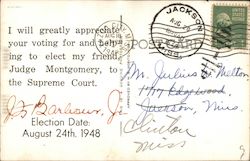 I will greatly appreciate
your voting for and help-
ing to elect my friend
Judge Montgomery, to
the Supreme Court.
J. S. Barbour, Jr.
Election Date:
August 24th. 1948
POST CARD
JACKSON
AUG
Mr. Julius Melton
Edgewood
Jackson, Miss
Clinton
Miss